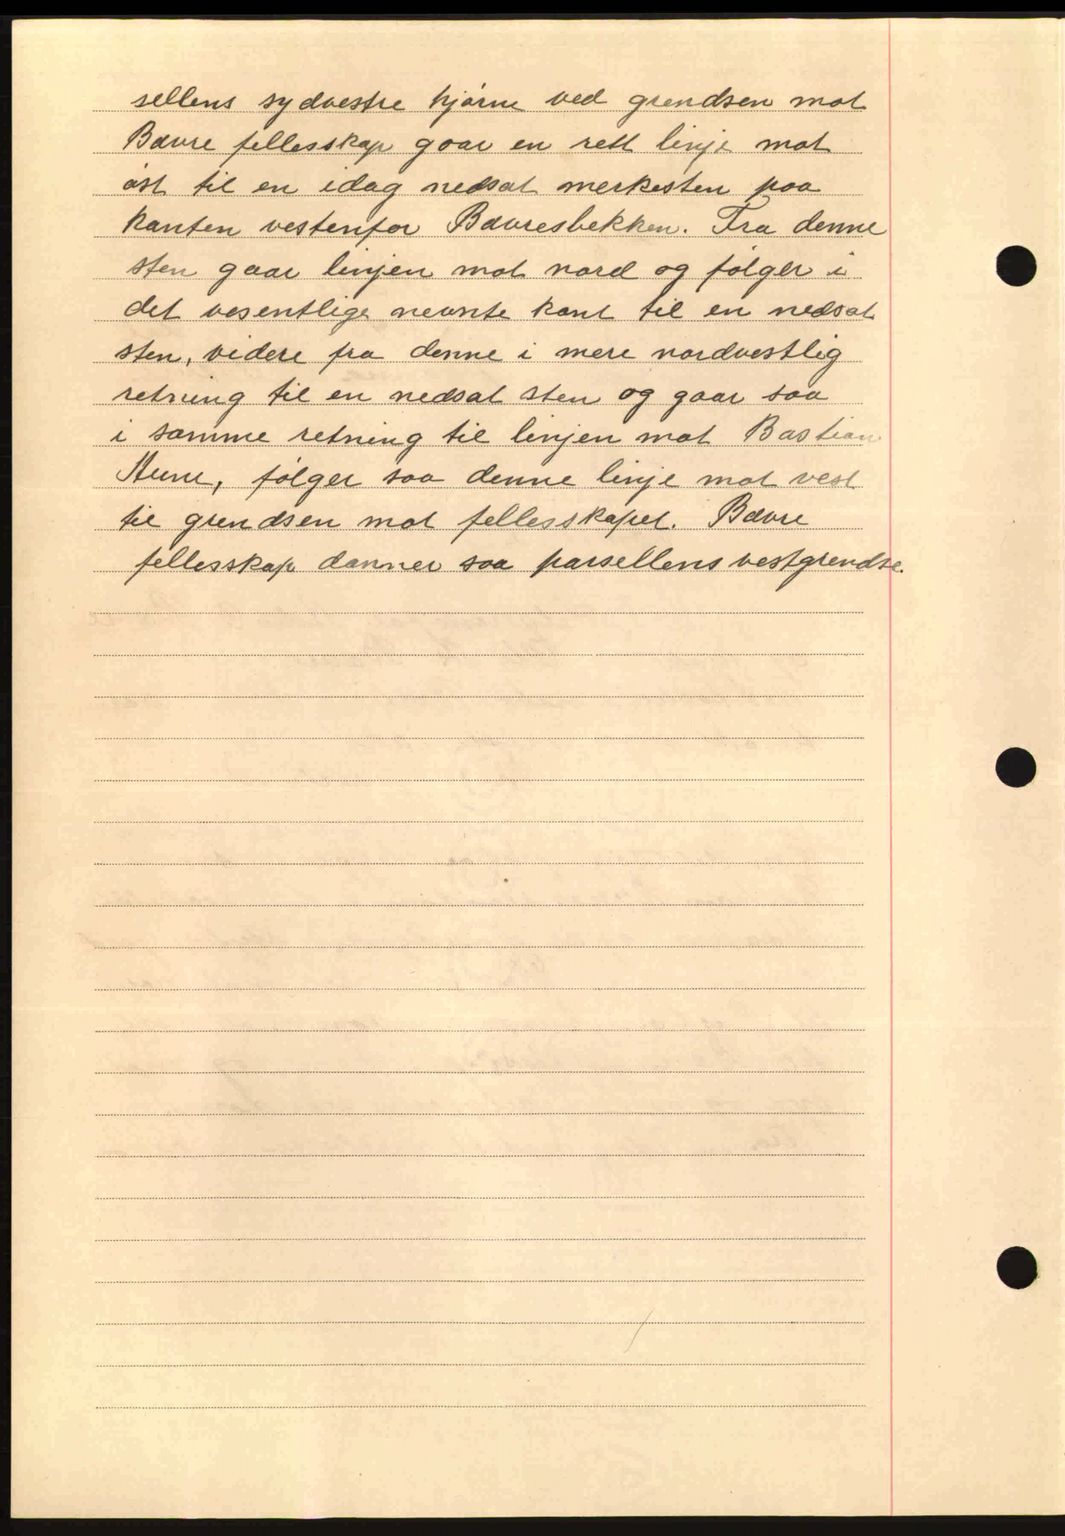 sellens sydvestre hjørne ved grendsen mot
Bævre fellesskap gaar en rett linje mot
øst til en idag nedsat merkesten paa
kanten vestenfor Bævresbekken. Fra denne
sten gaar linjen mot nord og følger i
det vesentlige nevnte kant til en nedsat
sten, videre fra denne i mere nordvestlig
retning til en nedsat sten og gaar saa
i samme retning til linjen mot Bastian
følger saa denne linje mot vest
til grendsen mot fellesskapet. Bævre
fellesskap danner saa parsellens vestgrendse.